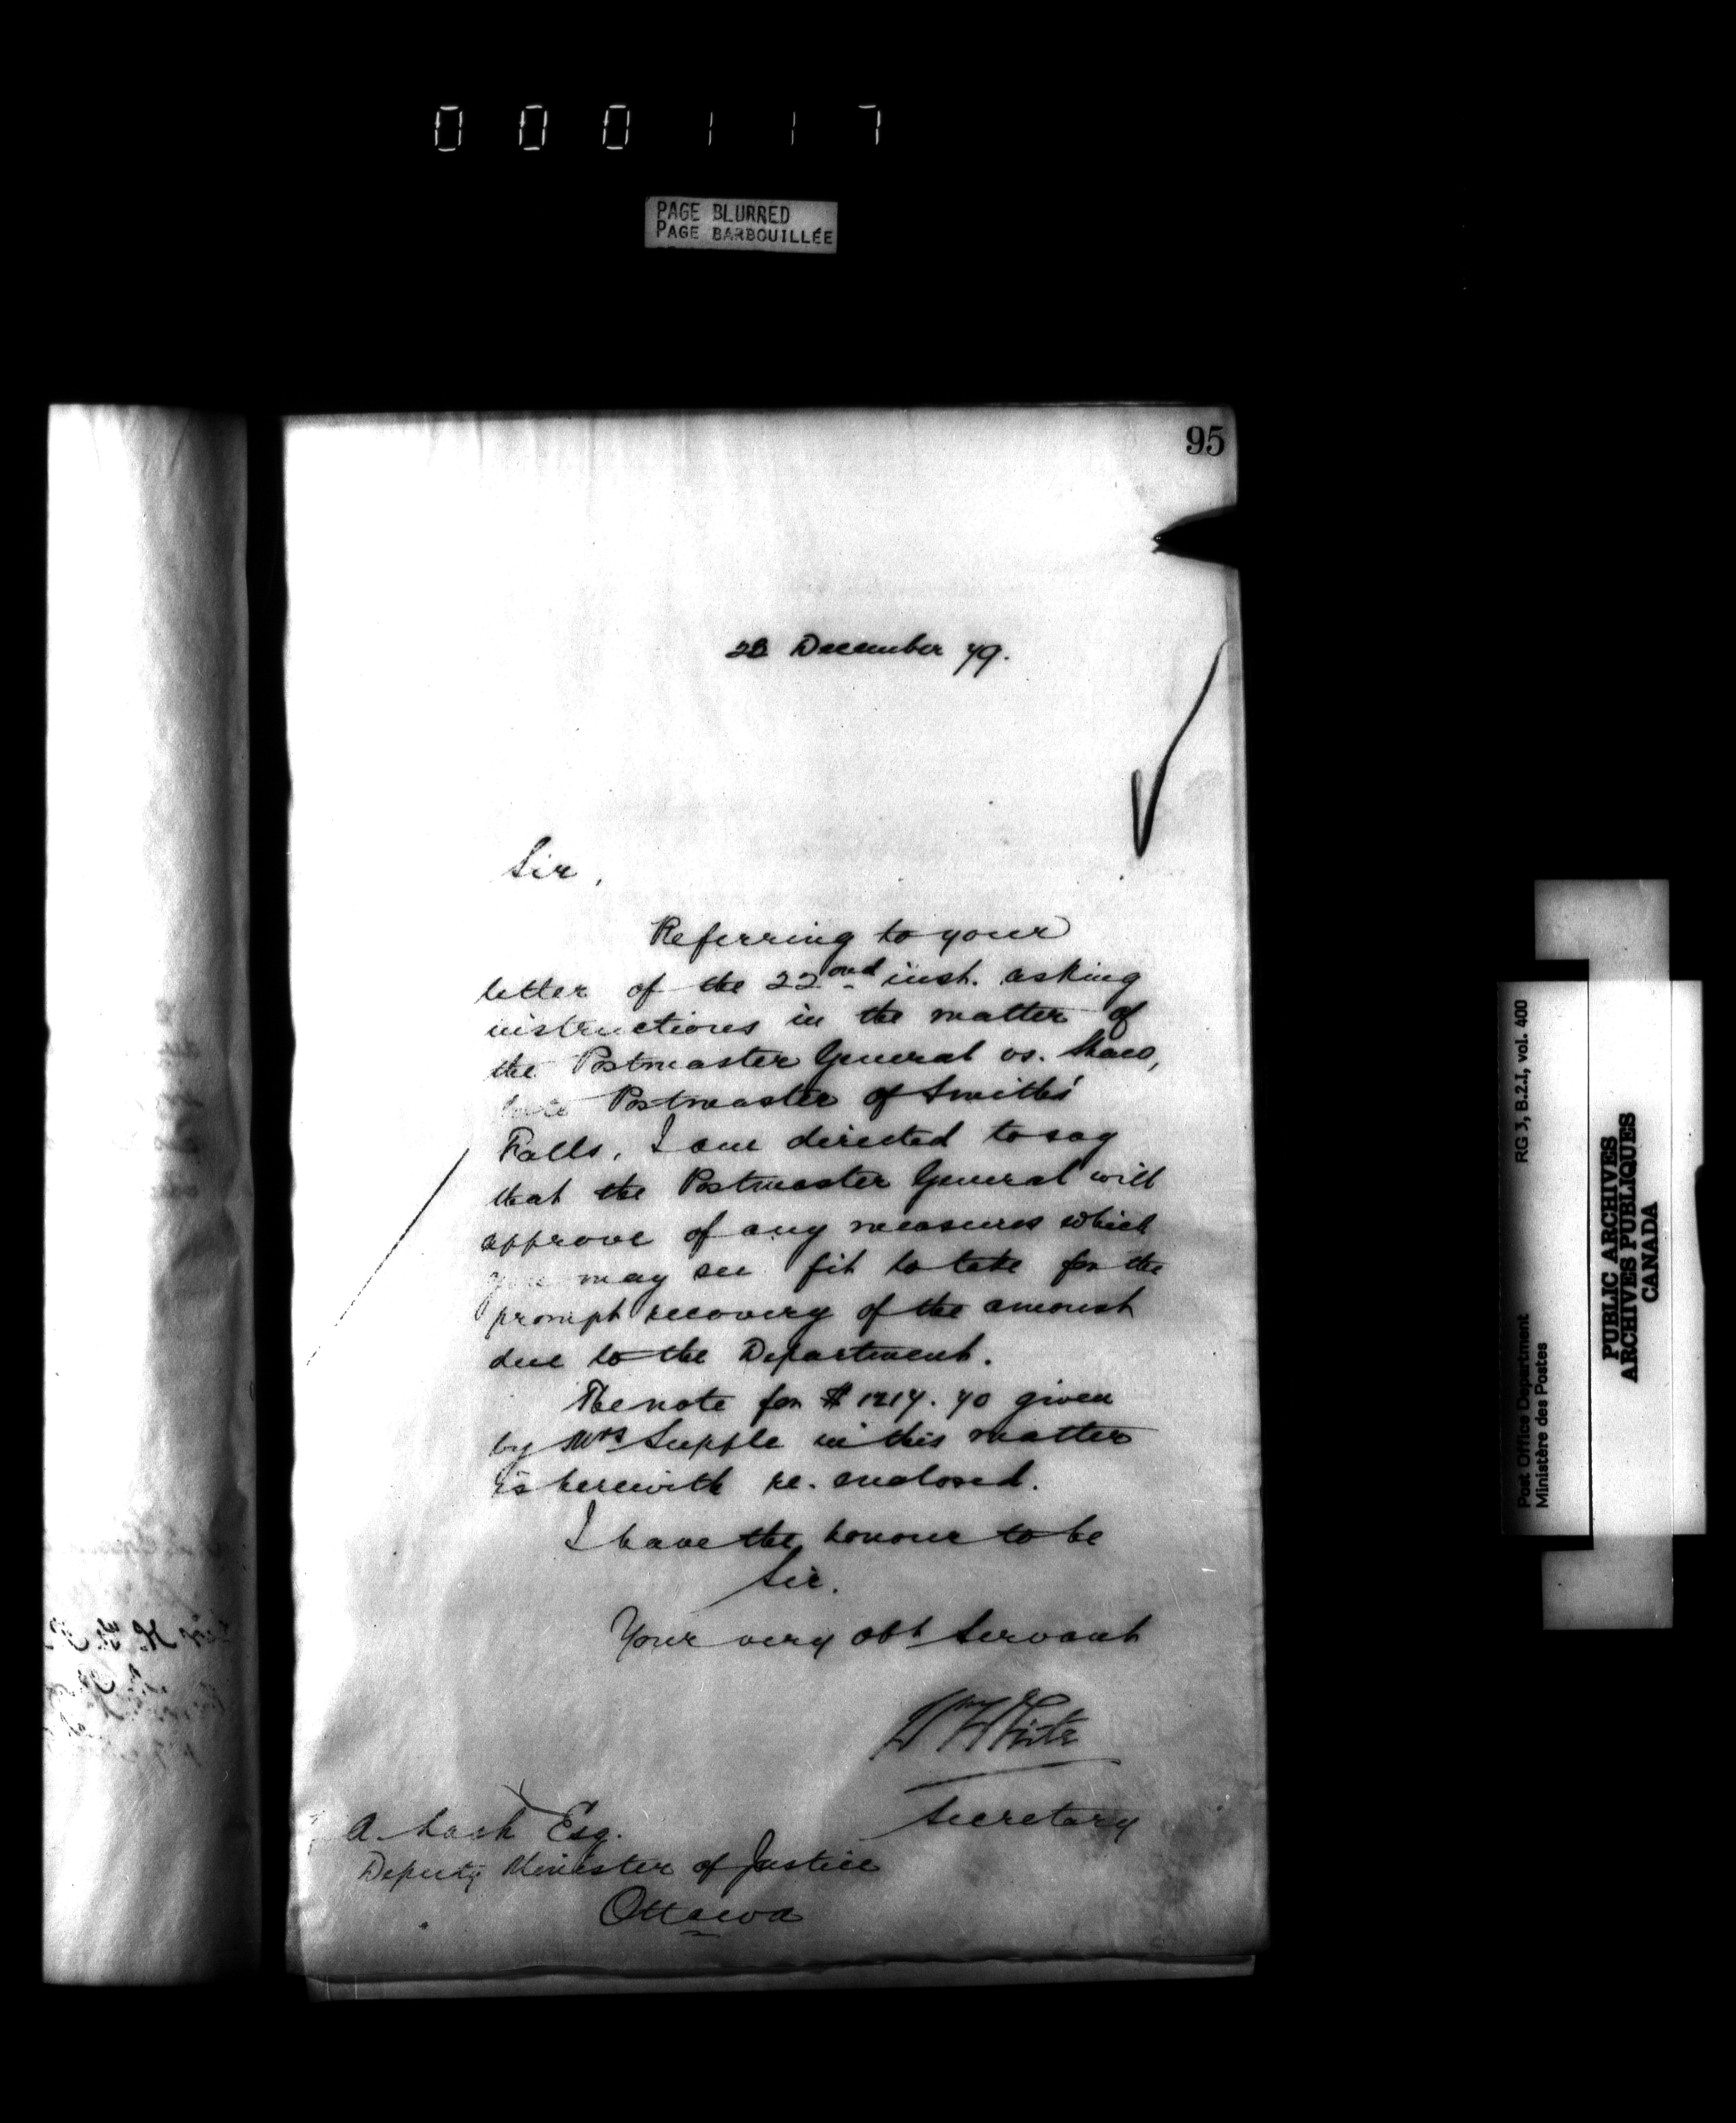 000117
PAGE BLURRED
PAGE BARBOUILLÉE
95
December 79.
Sir,
Referring to your
letter of the 22nd inst. asking
instructions in the matter of
the Postmaster General vs. Shaw,
late Postmaster of Smiths'
Falls, I am directed to say
that the Postmaster General will
approve of any measures which
you may see fit to take for the
prompt recovery of the amount
due to the Department.
The note for $ given
by Mrs Supple in this matter
is herewith re-enclosed.
I have the honour to be
Sir.
Your very obt Servant
Wm White
Secretary
A. Lash Esq.
Deputy Minister of Justice
Ottawa
Post Office Department RG 3, B.2.1, vol. 400
Ministère des Postes
PUBLIC ARCHIVES
ARCHIVES PUBLIQUES
CANADA